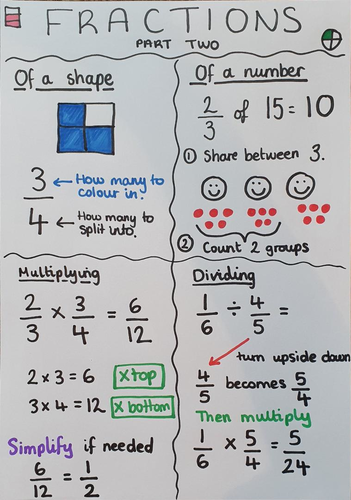 FRACTIONS
PART TWO
Of a shape
3 ← How many to
colour in?
4 ← How many to
split into?
Of a number
2/3 of 15 = 10
① Share between 3.
② Count 2 groups
Multiplying
2/3 × 3/4 = 6/12
2 × 3 = 6 × top
3 × 4 = 12 × bottom
Simplify if needed
6/12 = 1/2
Dividing
1/6 ÷ 4/5 =
turn upside down
4/5 becomes 5/4
Then multiply
1/6 × 5/4 = 5/24